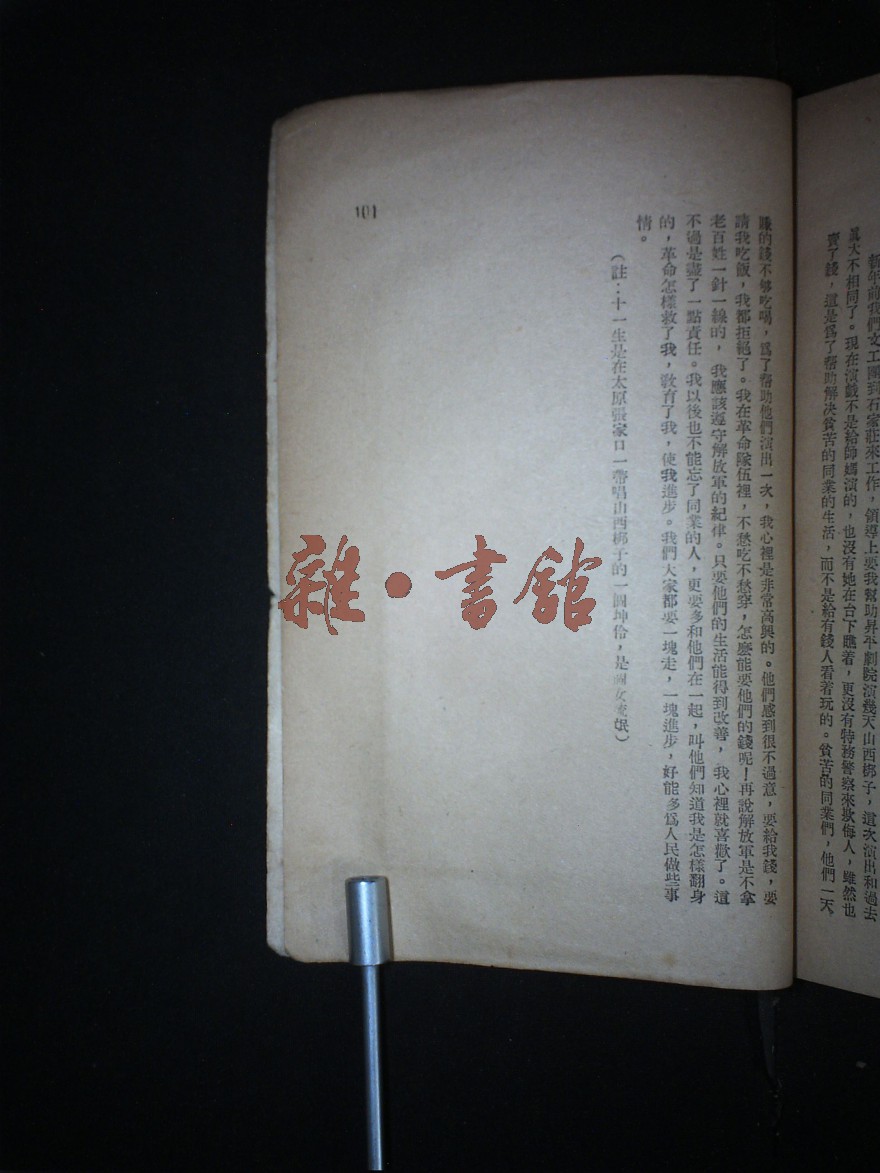 新年前我們文工團到石家莊來工作，領導上要我幫助昇平劇院演幾天山西梆子，這次演出和過去
眞大不相同了。現在演戲不是給師媽演的，也沒有她在台下瞧着，更沒有特務警察來欺侮人，雖然也
賣了錢，這是爲了幫助解决貧苦的同業的生活，而不是給有錢人看着玩的。貧苦的同業們，他們一天
賺的錢不够吃喝，爲了幫助他們演出一次，我心裡是非常高興的。他們感到很不過意，要給我錢，要
請我吃飯，我都拒絕了。我在革命隊伍裡，不愁吃不愁穿，怎麼能要他們的錢呢！再說解放軍是不拿
老百姓一針一線的，我應該遵守解放軍的紀律。只要他們的生活能得到改善，我心裡就喜歡了。這
不過是盡了一點責任。我以後也不能忘了同業的人，更要多和他們在一起，叫他們知道我是怎樣翻身
的，革命怎樣救了我，敎育了我，使我進步。我們大家都要一塊走，一塊進步，好能多爲人民做些事
情。
（註：十一生是在太原張家口一帶唱山西梆子的一個坤伶，是個女流氓）
101
雜·書館